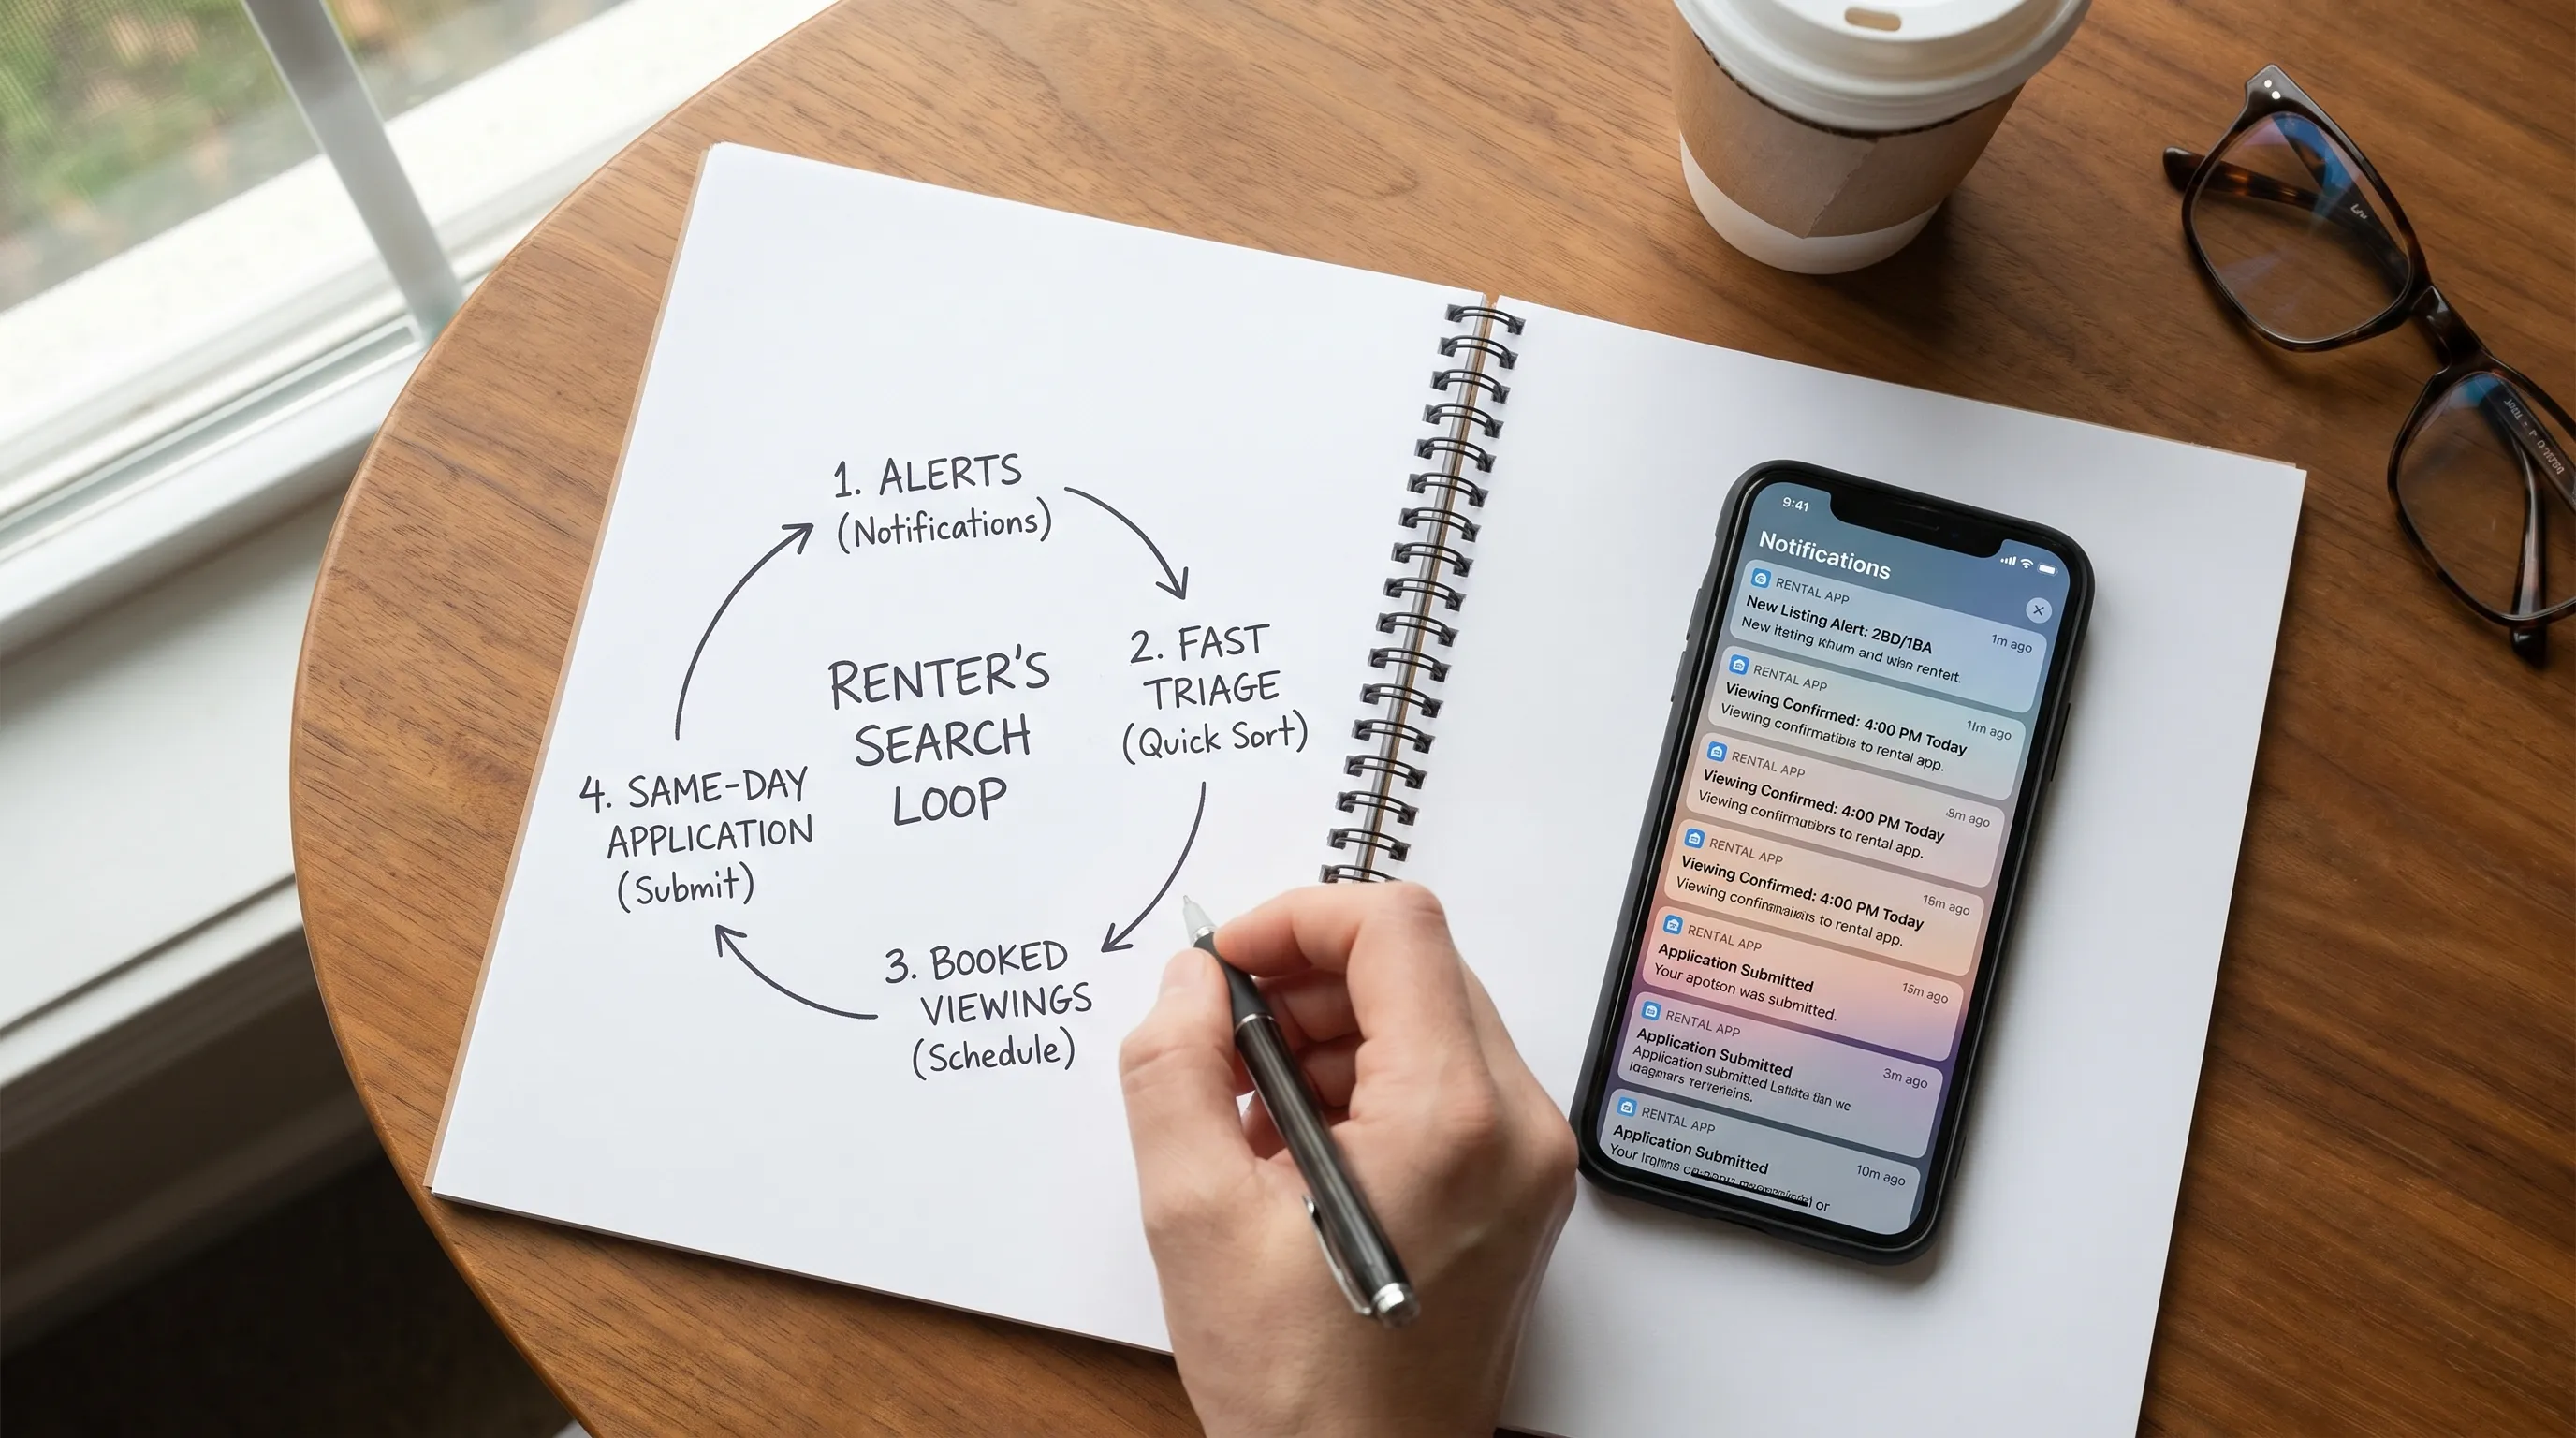 1. ALERTS
(Notifications)
2. FAST
TRIAGE
(Quick Sort)
3. BOOKED
VIEWINGS
(Schedule)
4. SAME-DAY
APPLICATION
(Submit)
RENTER'S
SEARCH
LOOP
9:41
Notifications
RENTAL APP
New Listing Alert: 2BD/1BA
1m ago
New and
RENTAL APP
Viewing Confirmed: 4:00 PM Today
11m ago
Viewing to rental app.
RENTAL APP
Viewing Confirmed: 4:00 PM Today
8m ago
Viewing to rental app.
RENTAL APP
Viewing Confirmed: 4:00 PM Today
16m ago
Viewing to rental app.
RENTAL APP
Application Submitted
15m ago
Your was submitted.
RENTAL APP
Application Submitted
3m ago
Application submitted we
RENTAL APP
Application Submitted
10m ago
Your or